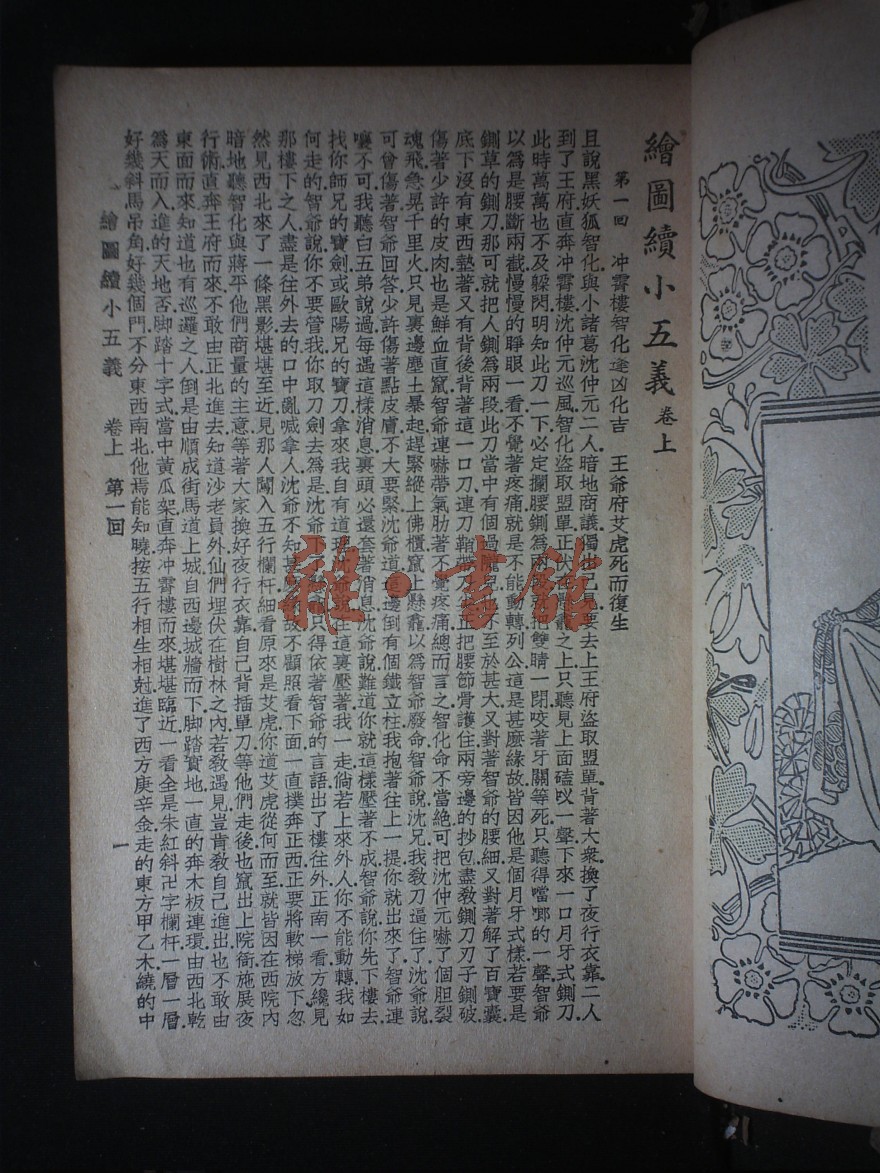 繪圖續小五義 卷上
第一回 冲霄樓智化逢凶化吉 王爺府艾虎死而復生
且說黑妖狐智化與小諸葛沈仲元二人暗地商議獨出己見要去上王府盜取盟單背著大衆換了夜行衣靠二人
到了王府直奔冲霄樓沈仲元巡風智化盜取盟單正伏在懸龕之上只聽見上面磕哎一聲下來一口月牙式鍘刀
此時萬萬也不及躱閃明知此刀一下必定攔腰鍘爲兩段把雙睛一閉咬著牙關等死只聽得噹啷的一聲智爺
以爲是腰斷兩截慢慢的睜眼一看不覺著疼痛就是不能動轉列公這是甚麽緣故皆因他是個月牙式樣若要是
鍘草的鍘刀那可就把人鍘爲兩段此刀當中有個過隴兒不至於甚大又對著智爺的腰細又對著解了百寶囊
底下沒有東西墊著又有背後背著這一口刀連刀鞘帶刀正把腰節骨護住兩旁邊的抄包盡敎鍘刀刃子鍘破
傷著少許的皮肉也是鮮血直竄智爺連嚇帶氣肋著不覺疼痛總而言之智化命不當絶可把沈仲元嚇了個胆裂
魂飛急晃千里火只見裏邊塵土暴起趕緊縱上佛櫃竄上懸龕以爲智爺廢命智爺說沈兄我敎刀逼住了沈爺說
可曾傷著智爺回答少許傷著點皮膚不大要緊沈爺道這邊倒有個鐵立柱我抱著往上一提你就出來了智爺連
嚷不可我聽白五弟說過每遇這樣消息裏頭必還套著消息沈爺說難道你就這樣壓著不成智爺說你先下樓去
找你師兄的寶劍或歐陽兄的寶刀拿來我自有道理沈爺說在這裏壓著我一走倘若上來外人你不能動轉我如
何走的智爺說你不要管我你取刀劍去爲是沈爺只得依著智爺的言語出了樓往外正南一看方纔見
那樓下之人盡是往外去的口中亂喊拿人沈爺不知甚緣故不顧照看下面一直撲奔正西正要將軟梯放下忽
然見西北來了一條黑影堪堪至近見那人闖入五行欄杆細看原來是艾虎你道艾虎從何而至就皆因在西院內
暗地聽智化與蔣平他們商量的主意等著大家換好夜行衣靠自己背插單刀等他們走後也竄出上院衙施展夜
行術直奔王府而來不敢由正北進去知道沙老員外仙們埋伏在樹林之內若敎遇見豈肯敎自己進出也不敢由
東面而來知道也有巡邏之人倒是由順成街馬道上城自西邊城牆而下脚踏實地一直的奔木板連環由西北乾
爲天而入進的天地否脚踏十字式當中黃瓜架直奔冲霄樓而來堪堪臨近一看全是朱紅斜卍字欄杆一層一層
好幾斜馬吊角好幾個門不分東西南北他焉能知曉按五行相生相尅進了西方庚辛金走的東方甲乙木繞的中
繪圖續小五義 卷上 第一回 一
龍·書館